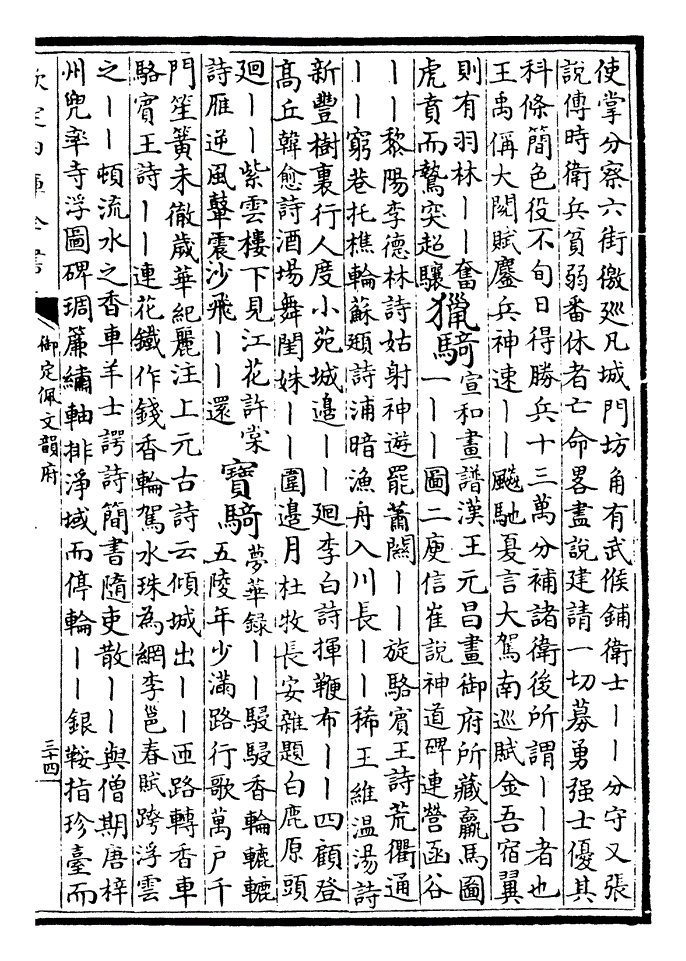 使掌分察六街徼廵凡城門坊角有武候鋪衛士——分守又張
說傅時衛兵貧弱番休者亡命畧盡說建請一切募勇强士優其
科條簡色役不旬日得勝兵十三萬分補諸衛後所謂——者也
王禹偁大閱賦鏖兵神速——飈馳夏言大駕南巡賦金吾宿翼
則有羽林——奮
虎賁而驁突超驤
獵騎
宣和畫譜漢王元昌畫御府所藏羸馬圖
一——圖二庾信崔說神道碑連營函谷
——黎陽李德林詩姑射神遊罷蕭闗——旋駱賓王詩荒衢通
——窮巷托樵輪蘇頲詩浦暗漁舟入川長——稀王維温湯詩
新豐樹裏行人度小苑城邉——廻李白詩揮鞭布——四顧登
高丘韓愈詩酒場舞閨姝——圍邉月杜牧長安雜題白鹿原頭
廻——紫雲樓下見江花許棠
詩雁逆風鼙震沙飛——還
寶騎
夢華録——駸駸香輪轆轆
五陵年少滿路行歌萬户千
門笙簧未徹歲華紀麗注上元古詩云傾城出——匝路轉香車
駱賓王詩——連花鐵作錢香輪駕水珠為網李邕春賦跨浮雲
之——頓流水之香車羊士諤詩簡書隨吏散——與僧期唐梓
州兜率寺浮圖碑琱簾繡軸排淨域而停輪——銀鞍指珍臺而
欽定四庫全書
御定佩文韻府
三十四